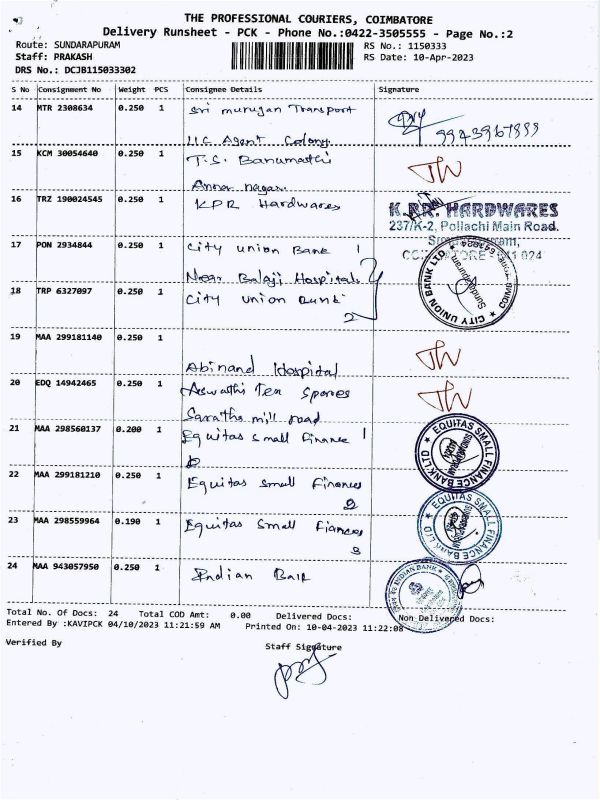 THE PROFESSIONAL COURIERS, COIMBATORE
Delivery Runsheet - PCK - Phone No.:0422-3505555 - Page No.:2
Route: SUNDARAPURAM
RS No.: 1150333
Staff: PRAKASH
RS Date: 10-Apr-2023
DRS No.: DCJB115033302
S No Consignment No Weight PCS Consignee Details Signature
14 MTR 2308634 0.250 1 Sri murugan Transport
LIC Agent Colony
9943967899
15 KCM 30054640 0.250 1 T.S. Banumathi
Anna nagar
16 TRZ 190024545 0.250 1 KPR Hardwares
K.P.R. HARDWARES
237/K-2, Pollachi Main Road.
17 PON 2934844 0.250 1 City union Bank 1
Near Balaji Hospital
18 TRP 6327097 0.250 1 City union Bank
2
CITY UNION BANK LTD.
Sundarapuram
19 MAA 299181140 0.250 1
Abinand Hospital
20 EDQ 14942465 0.250 1 Aswathi Tex Spares
Saratha mill road
21 MAA 298560137 0.200 1 Equitas small Finance 1
EQUITAS SMALL FINANCE BANK LTD
22 MAA 299181210 0.250 1 Equitas small Finances
2
EQUITAS SMALL FINANCE BANK LTD
23 MAA 298559964 0.190 1 Equitas Small Fiances
3
24 MAA 943057950 0.250 1 Indian Bank
INDIAN BANK
Total No. Of Docs: 24 Total COD Amt: 0.00 Delivered Docs: Non Delivered Docs:
Entered By :KAVIPCK 04/10/2023 11:21:59 AM Printed On: 10-04-2023 11:22:08
Verified By
Staff Signature